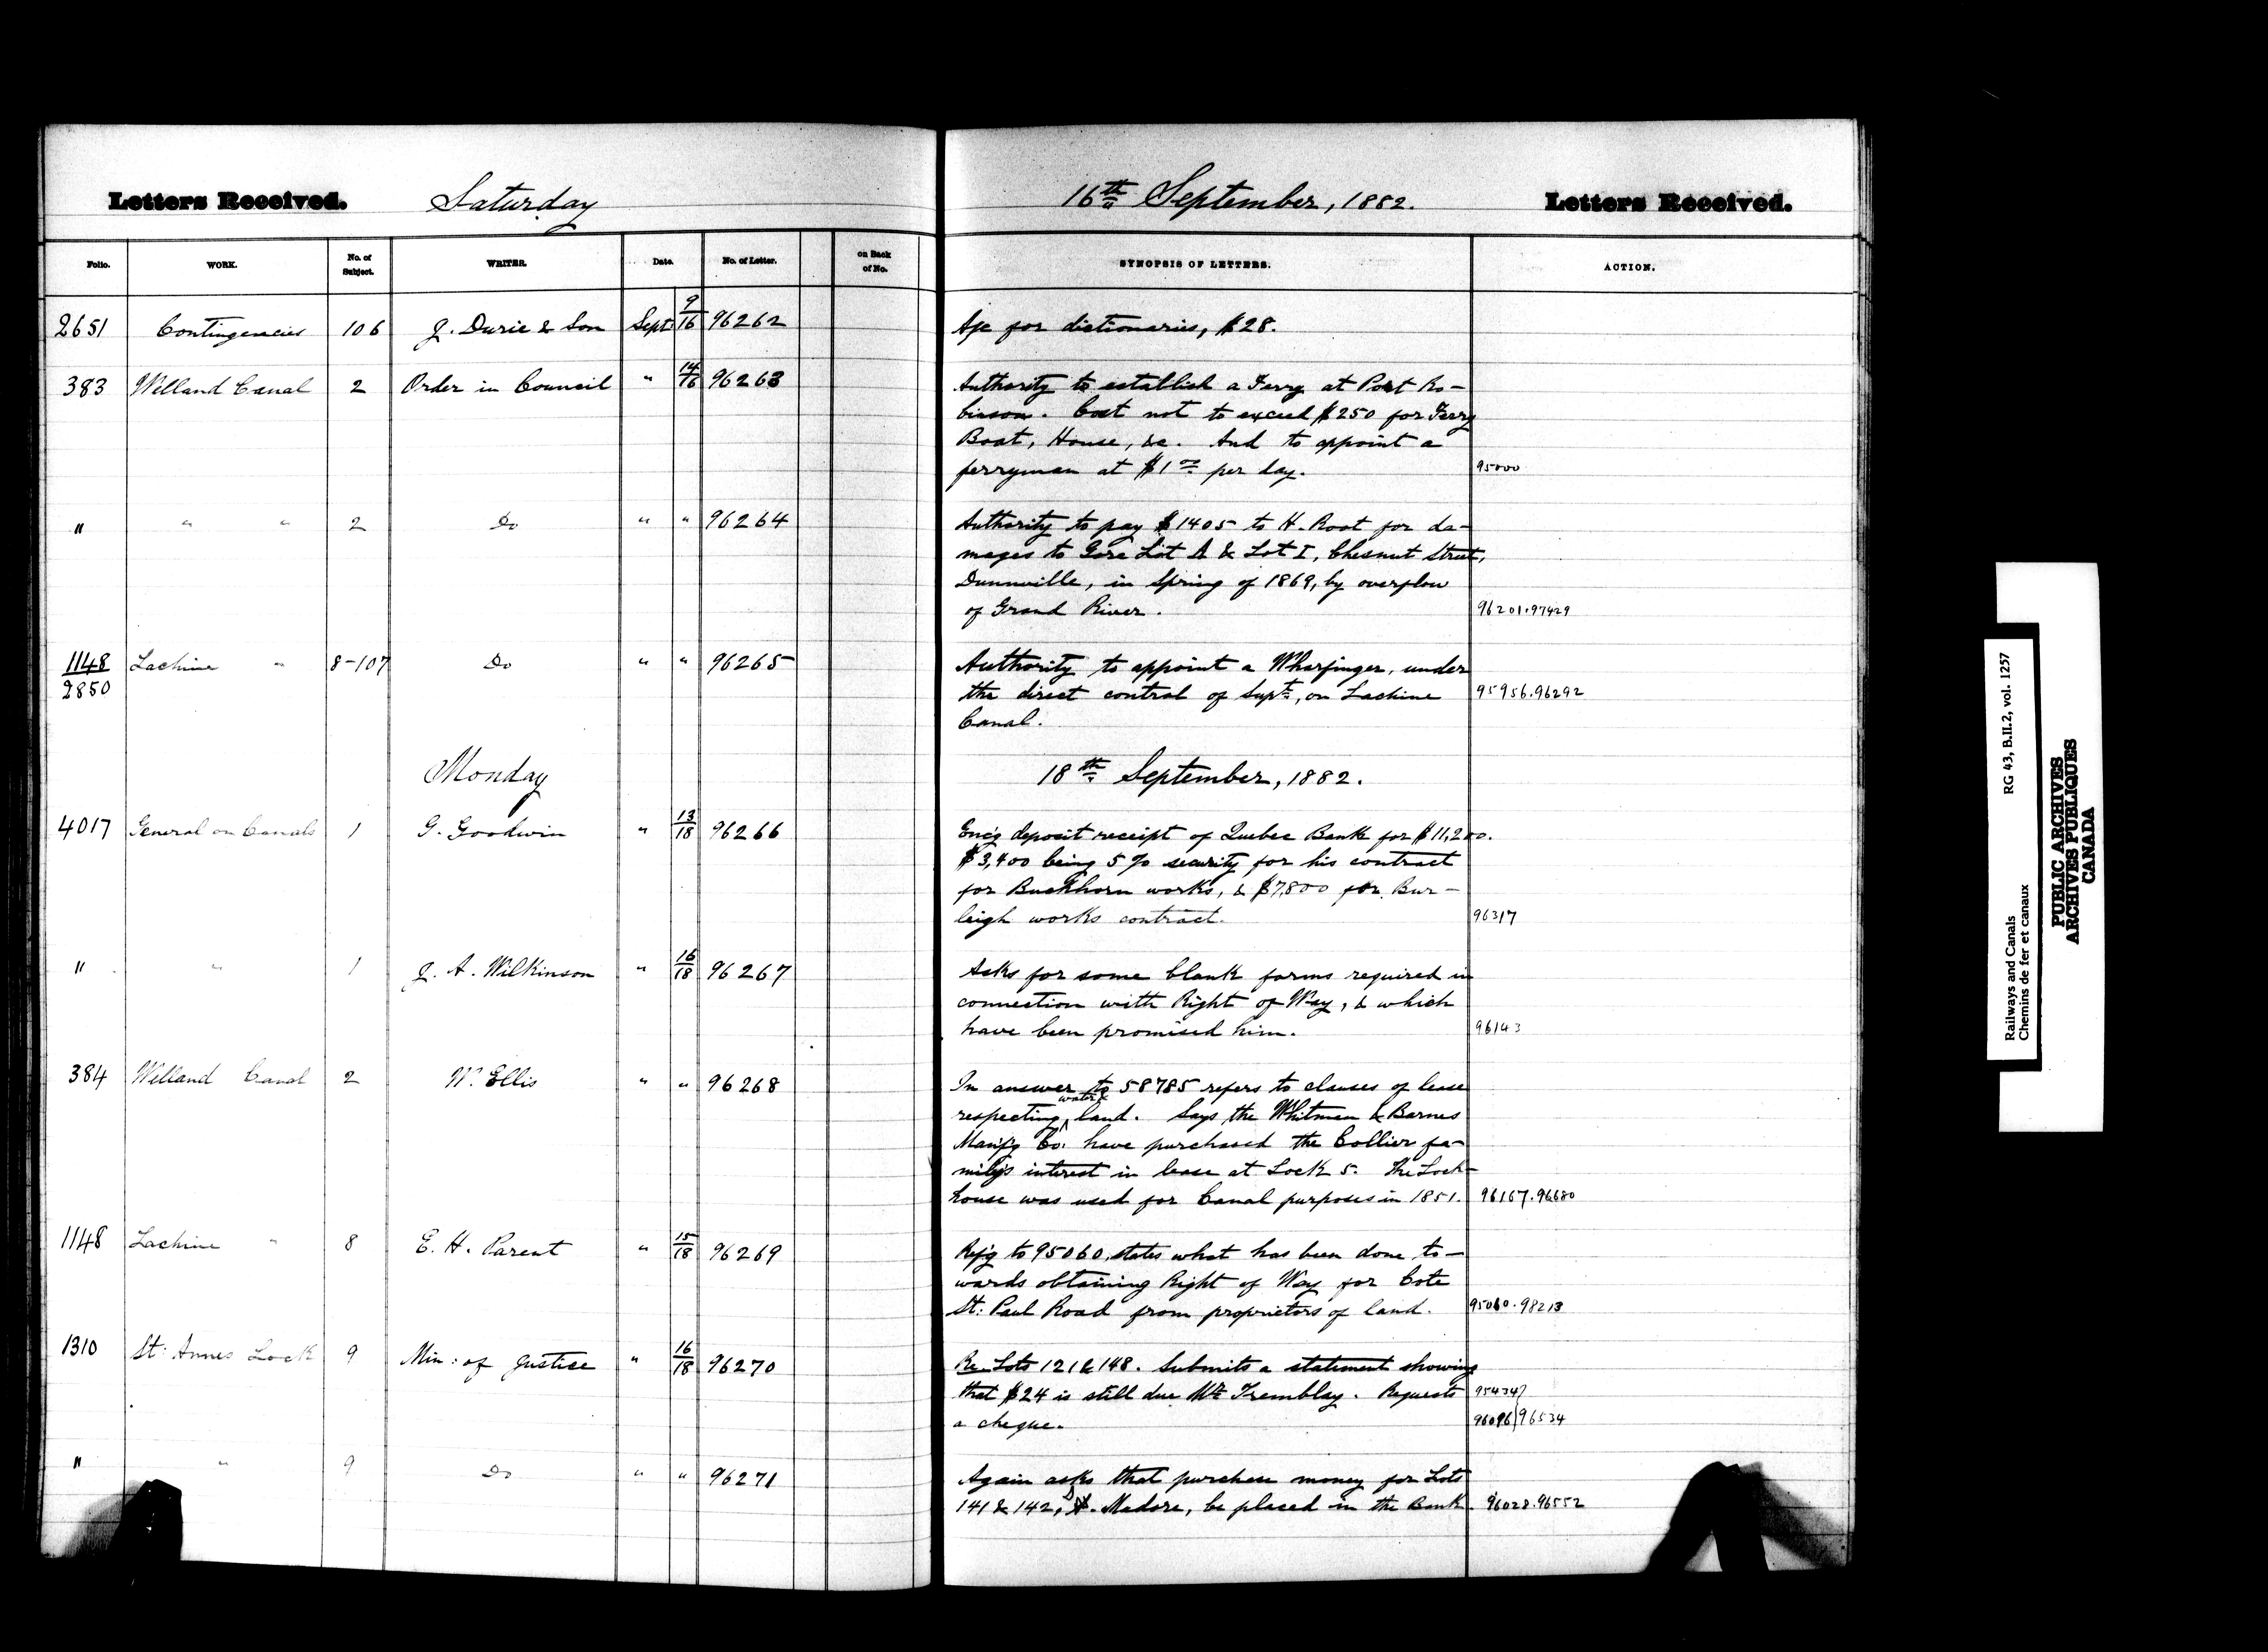 Letters Received. Saturday 16th September, 1882. Letters Received.
Folio. WORK. No. of Subject. WRITER. Date. No. of Letter. on Back of No. SYNOPSIS OF LETTERS. ACTION.
2651 Contingencies 106 J. Durie & Son Sept 9/16 96262 A/c for dictionaries, $28.
383 Welland Canal 2 Order in Council " 14/16 96263 Authority to establish a Ferry at Port Ro-
binson. Cost not to exceed $250 for Ferry
Boat, House, &c. And to appoint a
ferryman at $1.00 per day. 95000
" " " 2 Do " " 96264 Authority to pay $1405 to H. Root for da-
mages to Gore Lot A & Lot I, Chesnut Street,
Dunnville, in Spring of 1869, by overflow
of Grand River. 96201.97429
1148/2850 Lachine " 8-107 Do " " 96265 Authority to appoint a Wharfinger, under
the direct control of Supt, on Lachine 95956.96292
Canal.
Monday 18th September, 1882.
4017 General on Canals 1 G. Goodwin " 13/18 96266 Enc'g deposit receipt of Quebec Bank for $11,200.
$3,400 being 5% security for his contract
for Buckhorn works, & $7,800 for Bur-
leigh works contract. 96317
" " 1 J. A. Wilkinson " 16/18 96267 Asks for some blank forms required in
connection with Right of Way, & which
have been promised him. 96143
384 Welland Canal 2 W. Ellis " " 96268 In answer to 58785 refers to clauses of lease
respecting water & land. Says the Whitman & Barnes
Manf'g Co. have purchased the Collier fa-
mily's interest in lease at Lock 5. The Lock-
house was used for Canal purposes in 1851. 96167.96680
1148 Lachine " 8 E. H. Parent " 15/18 96269 Ref'g to 95060, states what has been done to-
wards obtaining Right of Way for Cote
St: Paul Road from proprietors of land. 95060.98213
1310 St: Annes Lock 9 Min: of Justice " 16/18 96270 Re Lots 121 & 148. Submits a statement showing
that $24 is still due Mr Tremblay. Requests 95434
a cheque. 96096 96534
" " 9 Do " " 96271 Again asks that purchase money for Lots
141 & 142, Madore, be placed in the Bank. 96028.96552
Railways and Canals RG 43, B.II.2, vol. 1257
Chemins de fer et canaux
PUBLIC ARCHIVES
ARCHIVES PUBLIQUES
CANADA